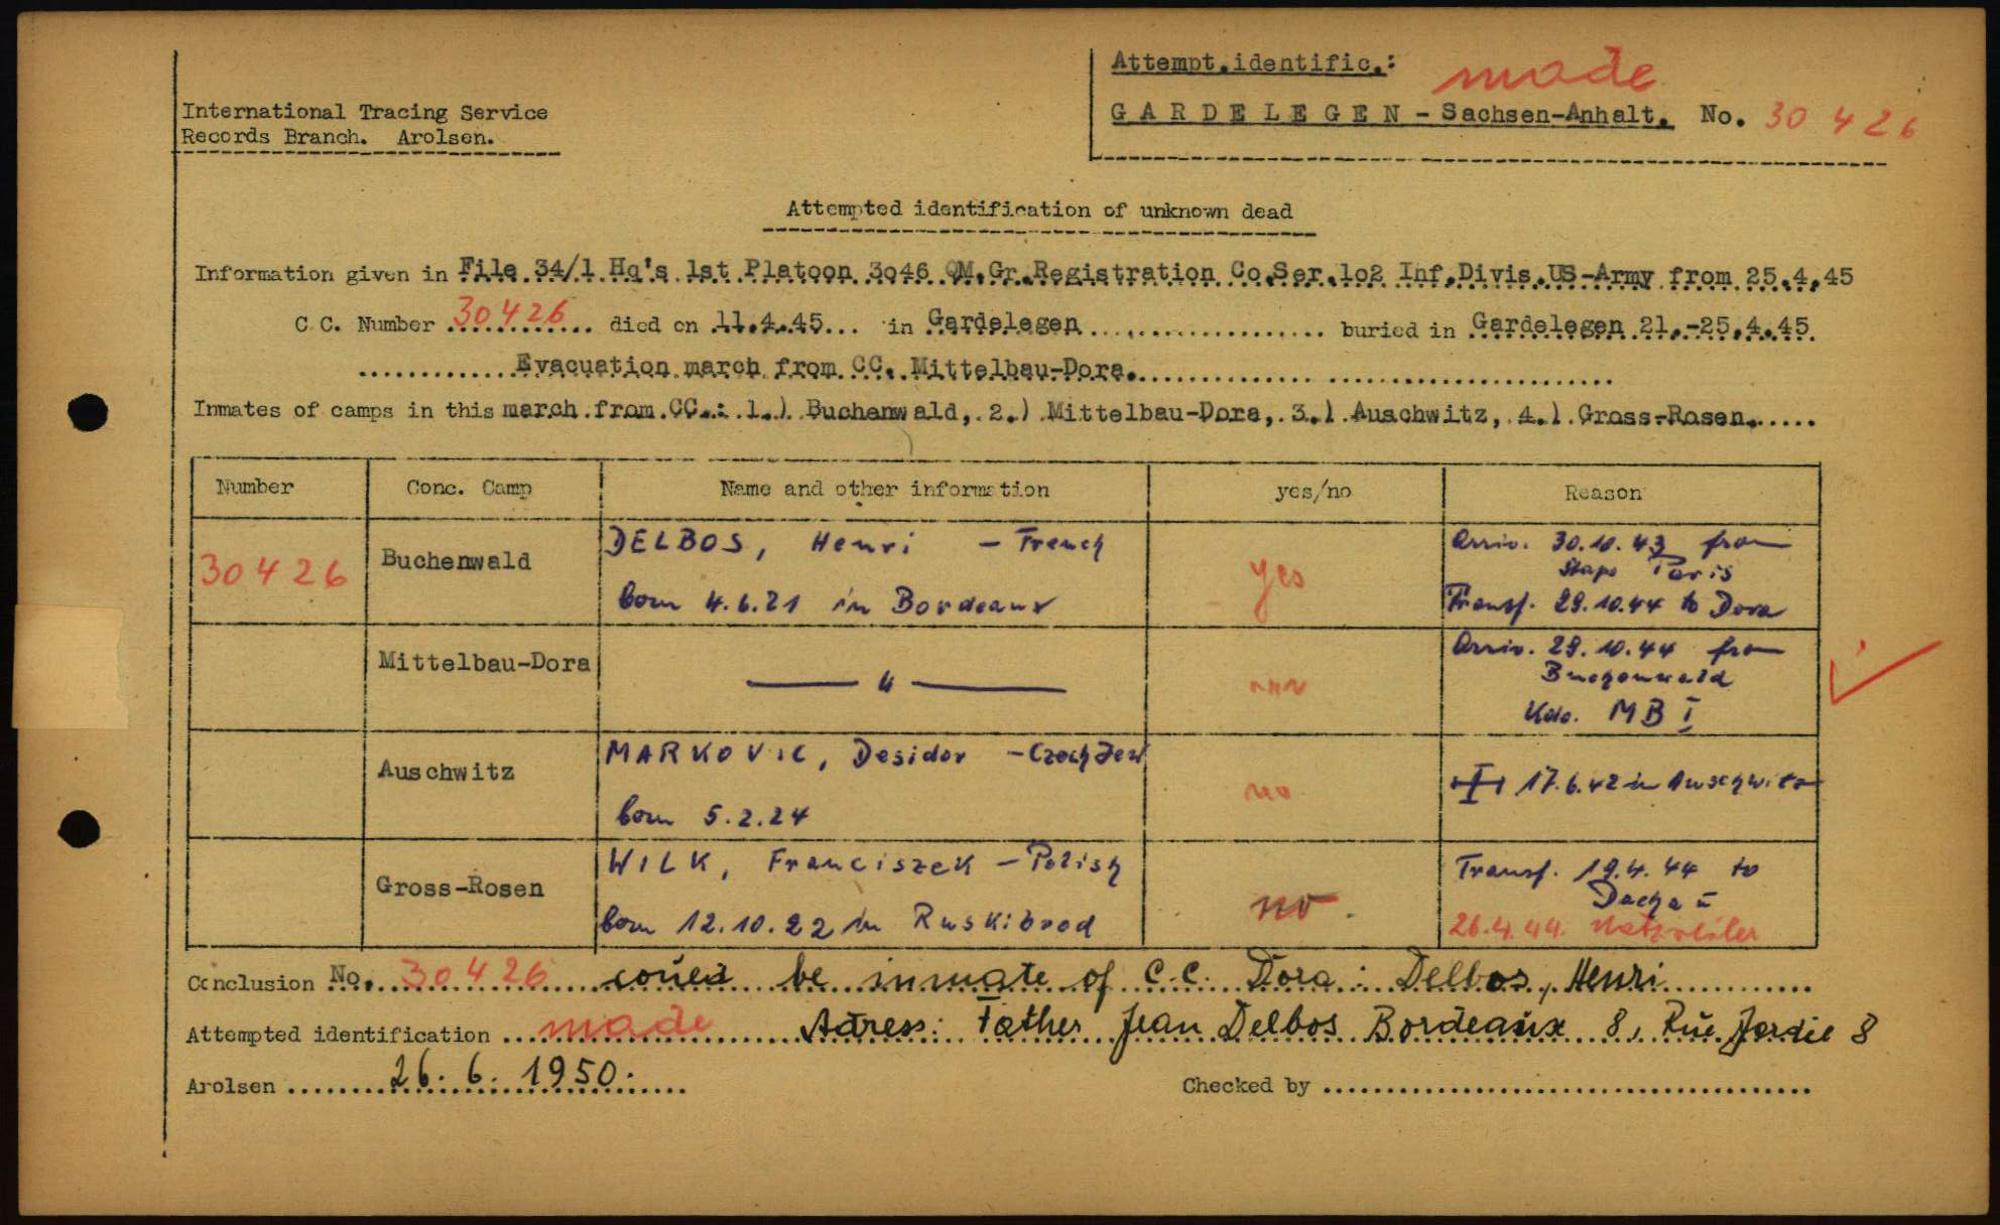 Attempt.identific.: made
International Tracing Service
Records Branch. Arolsen.
GARDELEGEN - Sachsen-Anhalt. No. 30 426
Attempted identification of unknown dead
Information given in File 34/1 Hq's 1st Platoon 3o46 QM.Gr.Registration Co.Ser.1o2 Inf.Divis.US-Army from 25.4.45
C.C. Number 30426 died on 11.4.45... in Gardelegen buried in Gardelegen 21.-25.4.45.
Evacuation march from CC. Mittelbau-Dora.
Inmates of camps in this march from CC.: 1.) Buchenwald, 2.) Mittelbau-Dora, 3.) Auschwitz, 4.) Gross-Rosen.
Number Conc. Camp Name and other information yes/no Reason
30426 Buchenwald DELBOS, Henri - French yes Arriv. 30.10.43 from
Stapo Paris
born 4.6.21 in Bordeaux Transf. 29.10.44 to Dora
Mittelbau-Dora — " — Arriv. 29.10.44 from
Buchenwald
Kdo. MB I
Auschwitz MARKOVIC, Desidor - Czech Jew no 17.6.42 in Auschwitz
born 5.2.24
Gross-Rosen WILK, Franciszek - Polish no. Transf. 19.4.44 to
Dachau
born 12.10.22 in Ruskibrod 26.4.44. Natzweiler
Conclusion No. 30426 coued be inmate of C.C. Dora: Delbos, Henri
Attempted identification made Adress: Father Jean Delbos Bordeaux 8, Rue Jardie 8
Arolsen 26. 6. 1950. Checked by